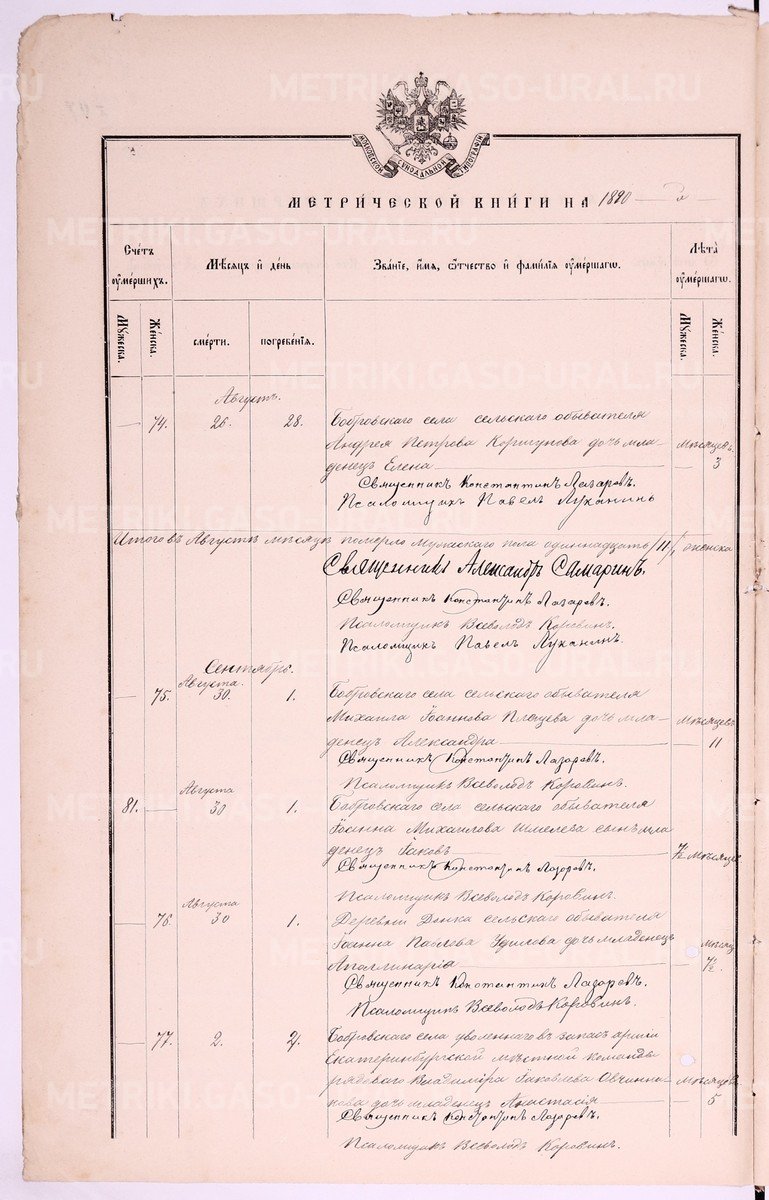 METRIKI.GASO-URAL.RU
МОСКОВСКОЙ СѴНОДАЛЬНОЙ ТИПОГРАФІИ
МЕТРИ́ЧЕСКОЙ КНИ́ГИ НА 1890 г.
Сче́тъ ᲂу҆ме́ршихъ.
Мѣ́сяцъ и҆ де́нь
Зва́нїе, и҆́мя, ѻ҆́тчество и҆ фами́лїя ᲂу҆ме́ршагѡ.
Лѣта̀ ᲂу҆ме́ршагѡ.
Мꙋ́жеска.
Же́нска.
сме́рти.
погребе́нїѧ.
Мꙋ́жеска.
Же́нска.
Августъ.
— 74. 26. 28. Бобровскаго села сельскаго обывателя
Андрея Петрова Коршунова дочь мла-
денецъ Елена — Мѣсяцевъ 3
Священникъ Константинъ Лазаревъ.
Псаломщикъ Павелъ Луканинъ
Итого въ Августѣ мѣсяцѣ померло мужескаго пола одиннадцать /11/, женска
Священникъ Александръ Самаринъ.
Священникъ Константинъ Лазаревъ.
Псаломщикъ Всеволодъ Коровинъ.
Псаломщикъ Павелъ Луканинъ.
Сентябрь.
Августа
— 75. 30. 1. Бобровскаго села сельскаго обывателя
Михаила Іоаннова дочь мла-
денецъ Александра — Мѣсяцевъ 11
Священникъ Константинъ Лазаревъ.
Псаломщикъ Всеволодъ Коровинъ.
Августа
81. — 30 1. Бобровскаго села сельскаго обывателя
Іоанна Михаилова Шмелева сынъ мла-
денецъ Іаковъ — Мѣсяцев
Священникъ Константинъ Лазаревъ.
Псаломщикъ Всеволодъ Коровинъ.
Августа
— 76. 30 1. Деревни сельскаго обывателя
Іоанна Павлова дочь младенецъ
Аполлинарія —
Священникъ Константинъ Лазаревъ.
Псаломщикъ Всеволодъ Коровинъ.
— 77. 2. 2. Бобровскаго села уволеннаго въ запасъ арміи
Екатеринбургской мѣстной команды
рядоваго Владиміра Іаковлева Овчинни-
кова дочь младенецъ Анастасія — Мѣсяцевъ 5
Священникъ Константинъ Лазаревъ.
Псаломщикъ Всеволодъ Коровинъ.